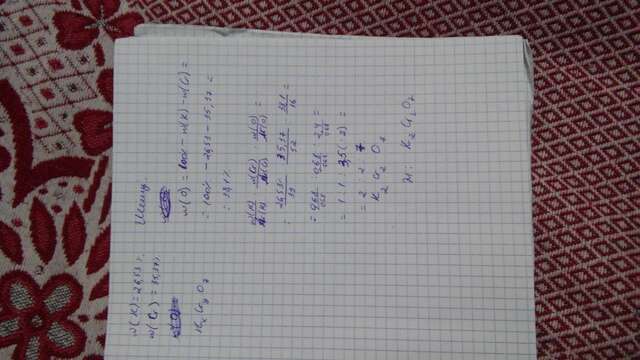 w(K) = 26,53%
w(Cr) = 35,37%
w(O)
KxCryO7
w(O) = 100% - w(K) - w(Cr) =
= 100% - 26,53 - 35,37 =
= 38,1%
w(K)/Ar(K) : w(Cr)/Ar(Cr) : w(O)/Ar(O) =
= 26,53/39 : 35,37/52 : 38,1/16 =
= 0,68/0,68 : 0,68/0,68 : 2,4/0,68 =
= 1 : 1 : 3,5 (·2) =
= 2 : 2 : 7
K2 Cr2 O7
K2Cr2O7